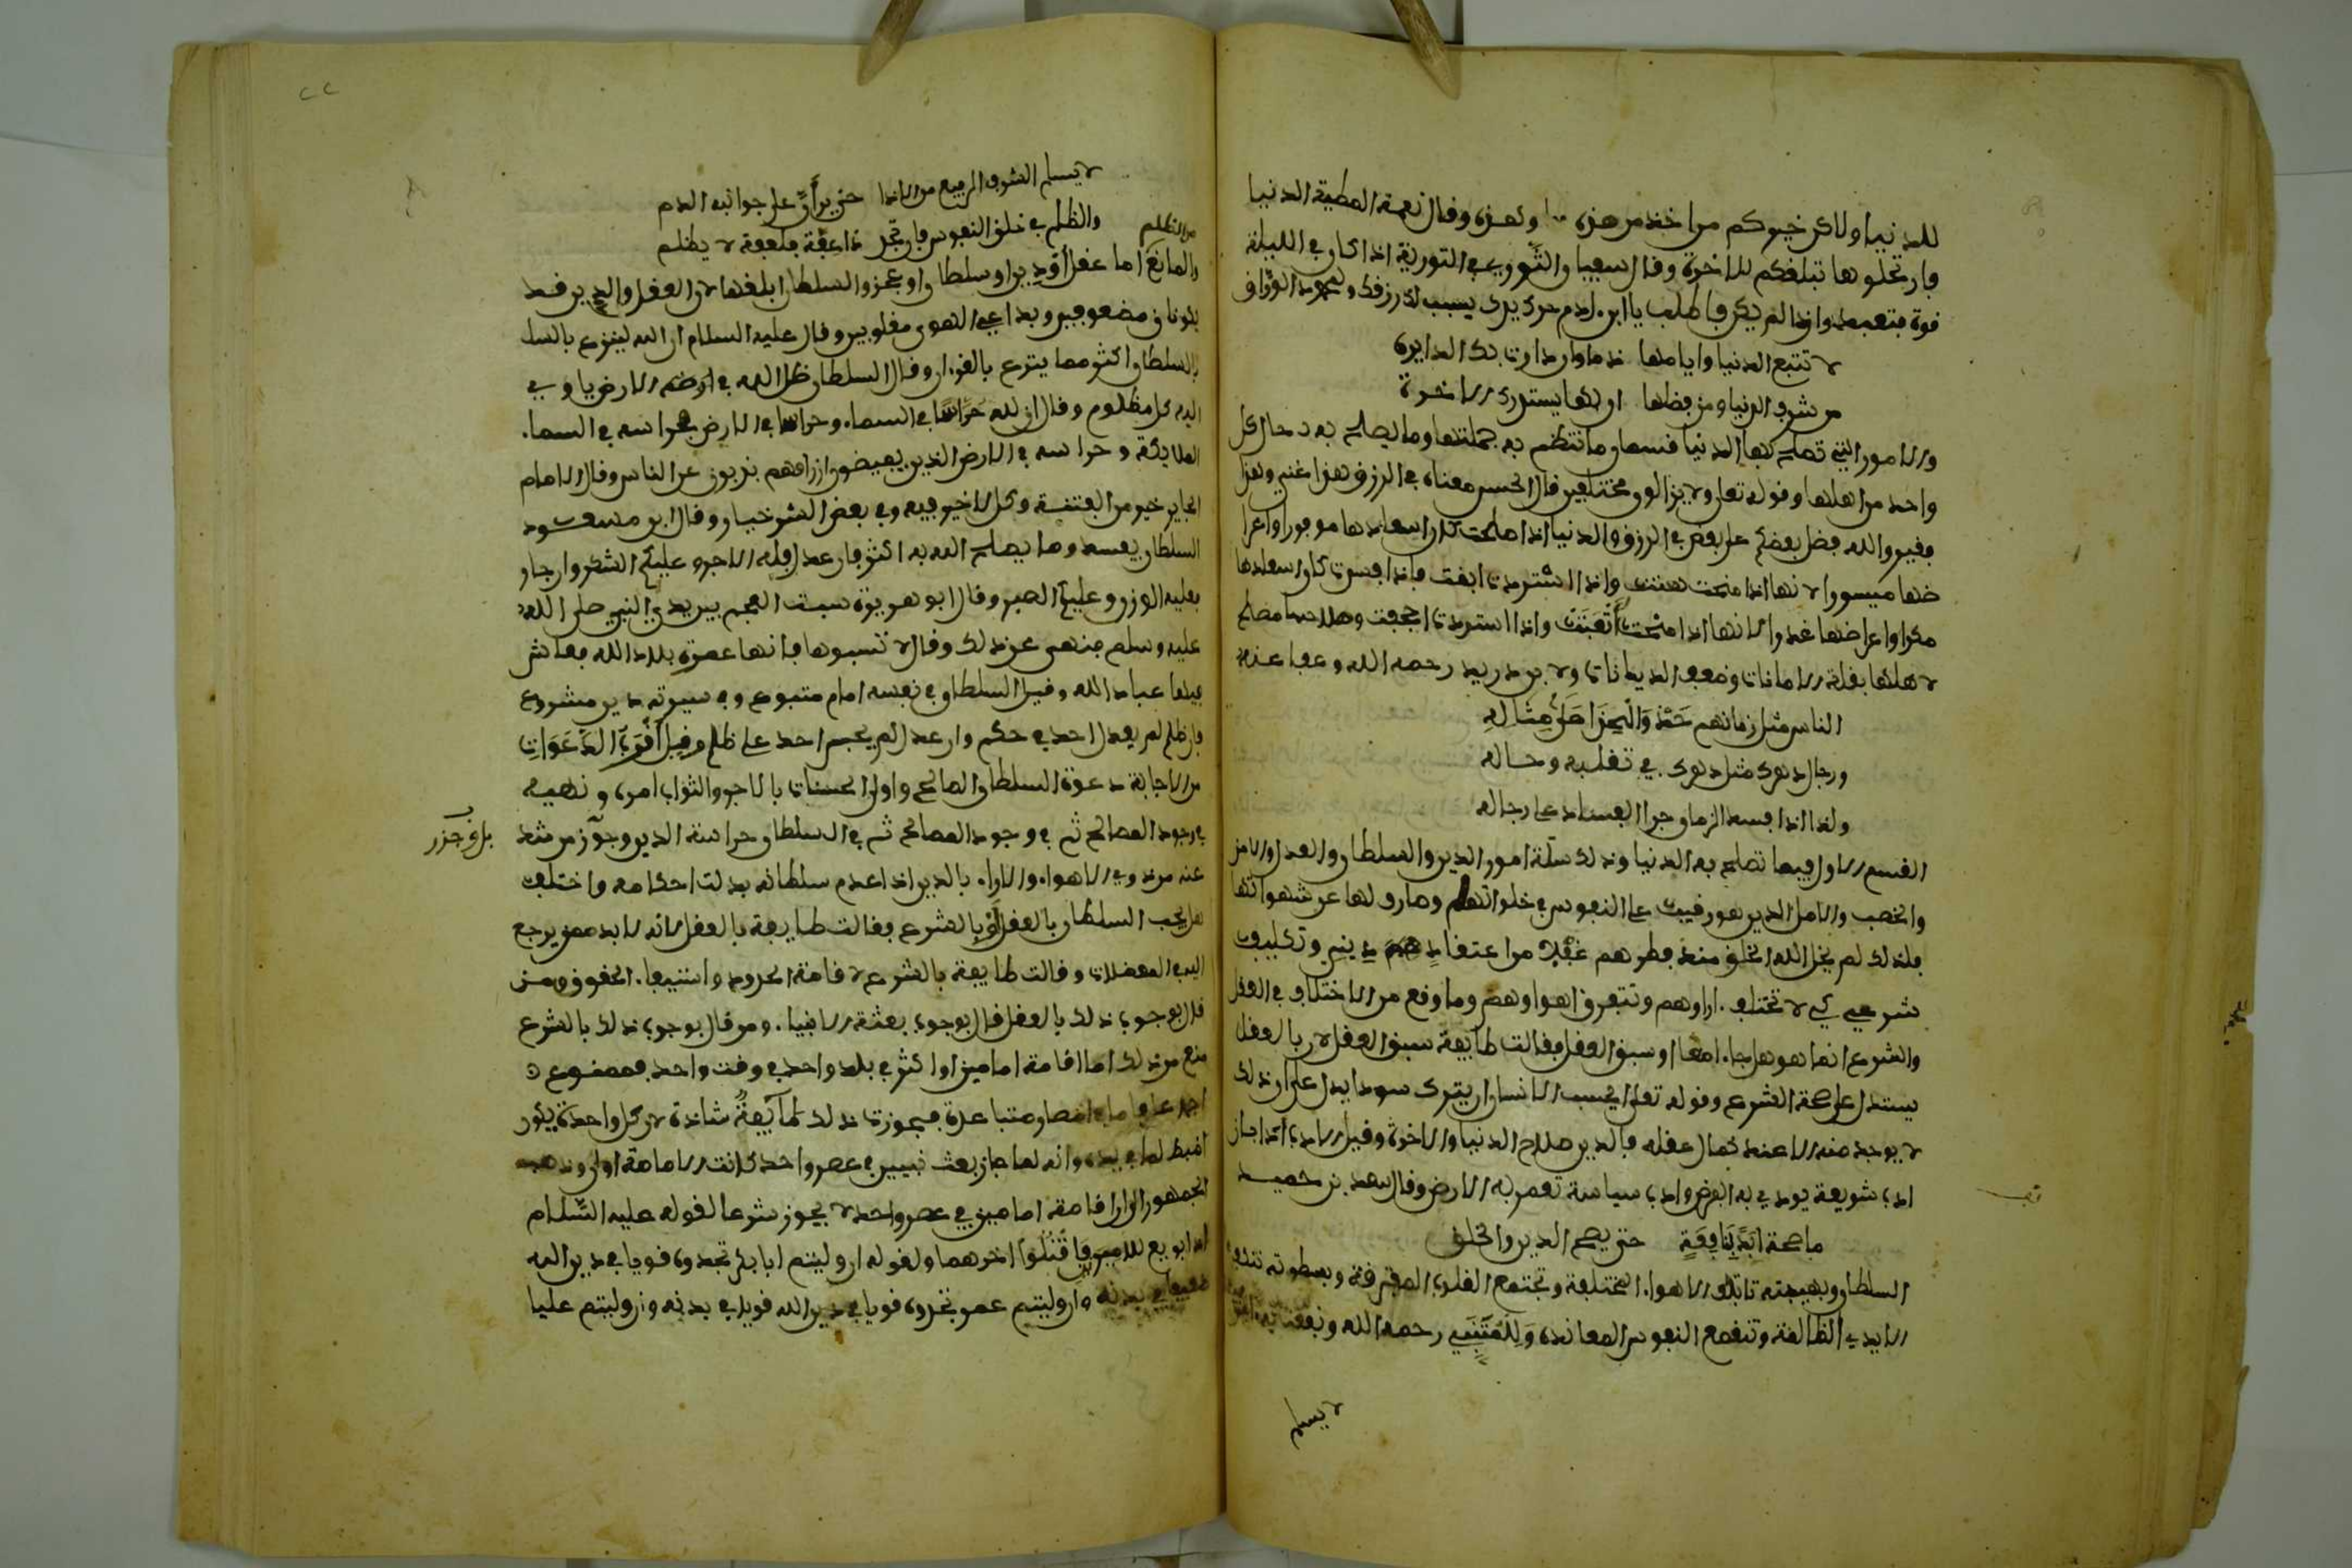 للدنيا ولاكن خيركم من اخذ من هذه وهذه وقال نعمة المطية الدنيا
فارتحلوها تبلغكم للاخرة وقال سفيان الثوري في التورية اذا كان في البيت
قوة فتعبد واذا لم يكن فاطلب يا ابن ءادم حرك يدك يسبب لك رزقك ولمحمود الوراق
لا تتبع الدنيا وايامها ذما وان دارت بك الدايرة
من شرف الدنيا ومن فضلها ان بها يستدرك الاخرة
والامور التي تصلح بها الدنيا قسمان ما تنتظم به جملتها وما يصلح به حال كل
واحد من اهلها وقوله تعلى ولا يزالون مختلفين قال الحسن معناه في الرزق هذا غني وهذا
فقير والله فضل بعضكم على بعض في الرزق والدنيا اذا صلحت كان اسعادها موفورا واعرا
ضها ميسورا لانها اذا منحت هنت واذا استردت ابقت واذا فسدت كان اسعادها
مكرا واعراضها غدرا لانها اذا منحت أتعبت واذا استردت اجحفت وصلاحها مصلح
لاهلها بقلة الامانات وضعف الديانات ولابن دريد رحمه الله وعفا عنه
الناس مثل زمانهم حذو الحذا على مثاله
ورجال دهرك مثل دهرك في تقلبه وحاله
وكذا اذا فسد الزمان جرا الفساد على رجاله
القسم الاول فيما تصلح به الدنيا وذلك ستة امور الدين والسلطان والعدل والامن
والخصب والامل الدين هو رقيب على النفوس في خلواتها وصارف لها عن شهواتها
فلذلك لم يخل الله الخلق منذ فطرهم عقلا من اعتقاد ديني وتكليف
شرعي كي لا تختلف ءاراوهم وتتفرق اهواوهم وما وقع من الاختلاف في العقل
والشرع انما هو هل جاءا معا او سبق العقل فقالت طايفة سبق العقل لان بالعقل
يستدل على صحة الشرع وقوله تعلى ايحسب الانسان ان يترك سودا يدل على ان ذلك
لا يوجد منه الا عند كمال عقله فالدين صلاح الدنيا والاخرة وقيل الادب ادبان
ادب شريعة يودي به الفرض وادب سياسة تعمر به الارض وقال سعد بن حميد
ما صحة ابدا بنافعة حتى يصح الدين والخلق
السلطان وبهيبته تاتلف الاهواء المختلفة وتجتمع القلوب المفترقة وبسطوته تنكف
الايدي الظالفة وتنقمع النفوس المعاندة وللمتنبي رحمه الله ونفعنا به
لا يسلم
لا يسلم الشرف الرفيع من الاذا حتى يراق على جوانبه الدم
والظلم في خلق النفوس فان تجد ذا عفة فلعفة لا يظلم
من الظلم
والمانع اما عقل أو دين او سلطان او عجز والسلطان ابلغها لان العقل والدين قد
يكونان مضعوفين وبداعي الهوى مغلوبين وقال عليه السلام ان الله ليزع بالسلـ
بالسلطان اكثر مما يتزع بالقرءان وقال السلطان ظل الله في ارضه الارض ياوي
اليه كل مظلوم وقال ان لله حراسا في السماء وحراسا في الارض فحراسه في السماء
الملايكة وحراسه في الارض الذين يقبضون ارزاقهم يذبون عن الناس وقال الامام
الجاير خير من الفتنة وكل لا خير فيه وفي بعض الشر خيار وقال ابن مسعود
السلطان يفسد وما يصلح الله به اكثر فان عدل فله الاجر وعليكم الشكر وان جار
فعليه الوزر وعليكم الصبر وقال ابو هريرة سبت العجم بين يدي النبي صلى الله
عليه وسلم فنهى عن ذلك وقال لا تسبوها فانها عمرت بلاد الله فعاش
فيها عباد الله وقيل السلطان في نفسه امام متبوع وفي سيرته دين مشروع
فان ظلم لم يعدل احد في حكم وان عدل لم يجسر احد على ظلم وقيل أقرب الدعوات
من الاجابة دعوة السلطان الصالح واولى الحسنات بالاجر والثواب امره ونهيه
في وجود المصالح ثم في وجود المصالح ثم في السلطان حراسة الدين وحوز من شذ
بل وحزر
عنه من ذوي الاهواء والاراء فالدين اذا عدم سلطانه بدلت احكامه واختلف
هل يجب السلطان بالعقل أو بالشرع فقالت طايفة بالعقل لانه لا بد ممن يرجع
اليه في المعضلات وقالت طايفة بالشرع لاقامة الحدود واستيفاء الحقوق ومن
قال بوجوب ذلك بالعقل قال بوجوب بعثة الانبياء ومن قال بوجوب ذلك بالشرع
منع من ذلك اما اقامة امامين او اكثر في بلد واحد في وقت واحد فممنوع
اجماعا واما في امصار متباعدة فجوزت ذلك طآيفة شاذة لان كل واحد يكون
اضبط لما في يده وانه لما جاز بعث نبيين في عصر واحد كانت الامامة اولى وذهب
الجمهور الى ان اقامة امامين في عصر واحد لا يجوز شرعا لقوله عليه السلام
اذا بويع للاميرين فاقتلوا اخرهما ولقوله ان وليتم ابا بكر تجدوه قويا في دين الله
ضعيفا في بدنه وان وليتم عمر تجدوه قويا في دين الله قويا في بدنه وان وليتم عليا